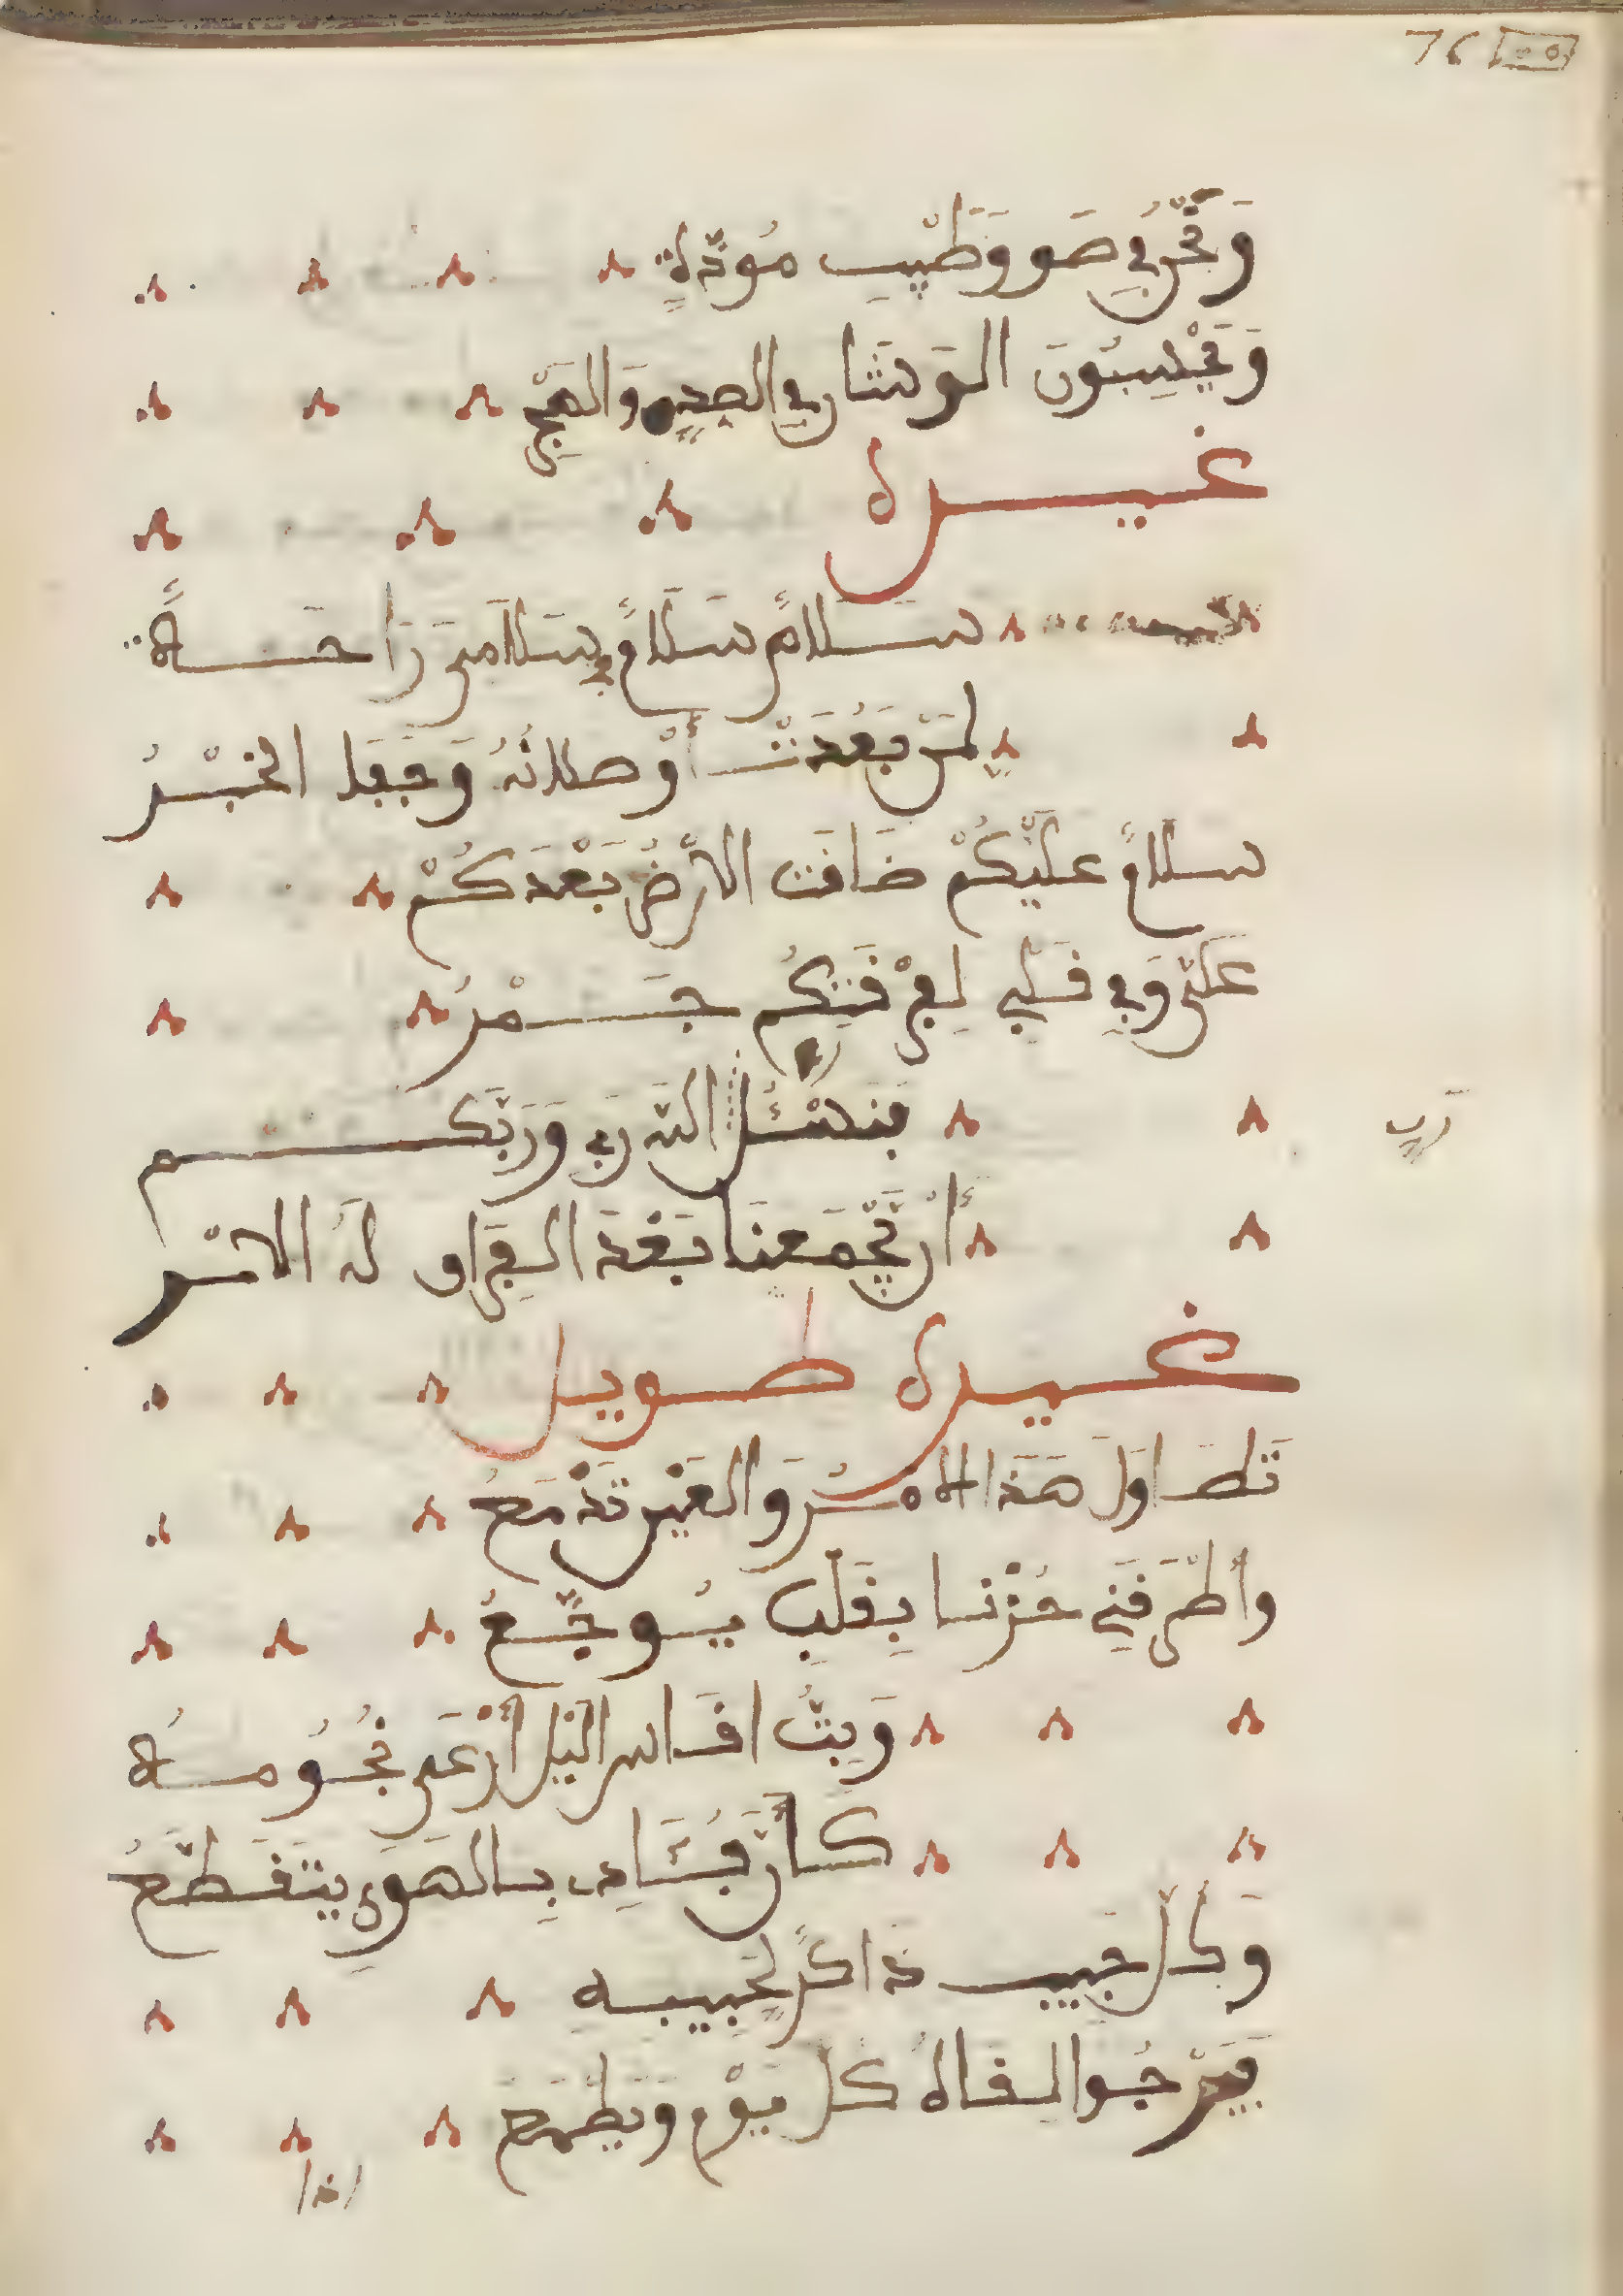 76
وَنَحْنُ فِي صَفو وَطِيبِ مُوَدَّةٍ
وَيَخِيبُونَ الوَشَا فِي الصدِّ وَالهَجْرِ
غيره
سَلامٌ سَلامٌ سَلامِى رَاحَةً
لِمَنْ بَعُدَتْ أَوْطانُهُ وَجَفَا الخبْرُ
سلامٌ عليْكُمْ ضَاقَت الارْضُ بَعْدَكُمْ
عَلَىَّ وَفِي قلْبي لِفِرْقَتِكُم جَمْرُ
فنسْئَلُ اللّه رَبِي وَرَبَّكم
أن يَّجْمَعنَا بَعْدَ الفِرَاق لَهُ الامْر
غيره طويل
تَطَاوَلَ هَذَا الامْرُ وَالعَيْن تَدْمَعُ
وأطْرَقَنِي حُزْنا بِقَلْبِ يُوجَّعُ
وَبِتُّ اقَاس اليْل أَرْعَى نُجُومهُ
كَأَنَّ فُؤَادِى بِالهَوِى يتَقَطَّعُ
وَكل حَبِيب ذَاكرٌ لحبيبه
فيَرْجُوا لِقَاهُ كل يَوْم وَيَطْمَع